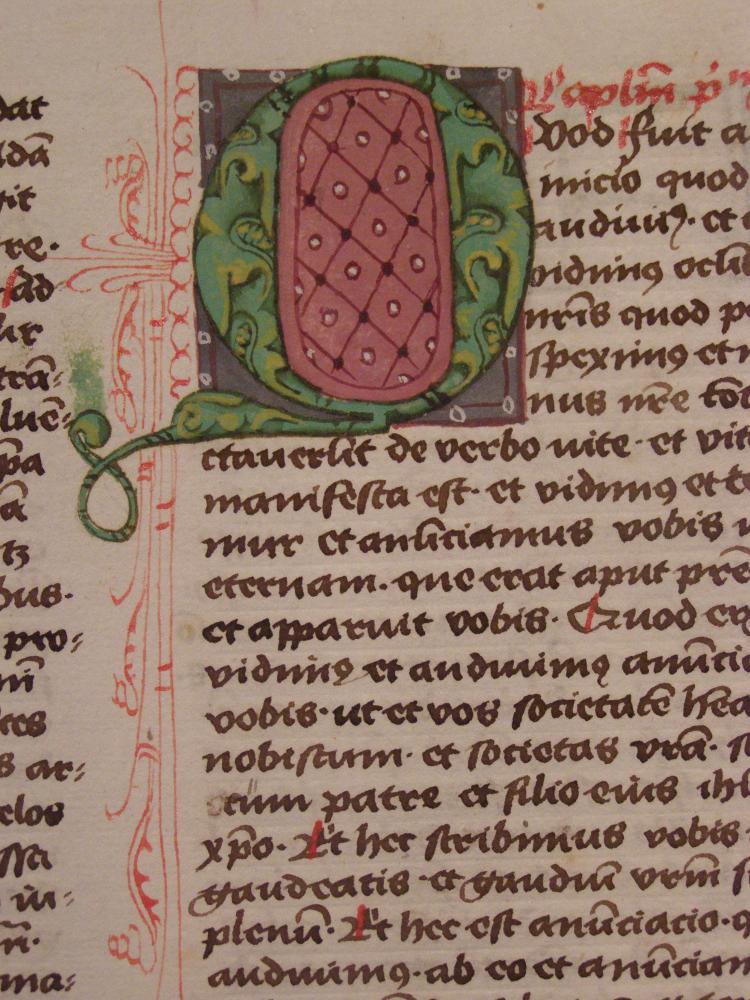 dat
ldā
tit
re·
ad
ur
trā:
luē:
pa
ā
tz
bus.
pro:
nī
tes
s ar:
elos
ssa
in:
m̄·
ma:
Q
Capl̄m p̄
vod fuit a
inicio quod
audiuiꝰ· et
vidimꝰ ocul
nr̄is quod p
spexim9 et
nus nr̄e
ctauer̄t de verbo uite· et vit
manifesta est· et vidimꝰ et te
mur et an̄ūciamus vobis
eternam· que erat aput pr̄e
et apparuit vobis· Quod er
vidimꝰ et audiuimꝰ anūcia
vobis· ut et vos societatē hea
nobiscum· et societas vr̄a· s
cum patre et filio eius ihū
xp̄o· Et hec scribimus vobis
gaudeatis et gaudiū vr̄m s
plenū· Et hec est anūciacio· q
audiuimꝰ· ab eo et anūciam